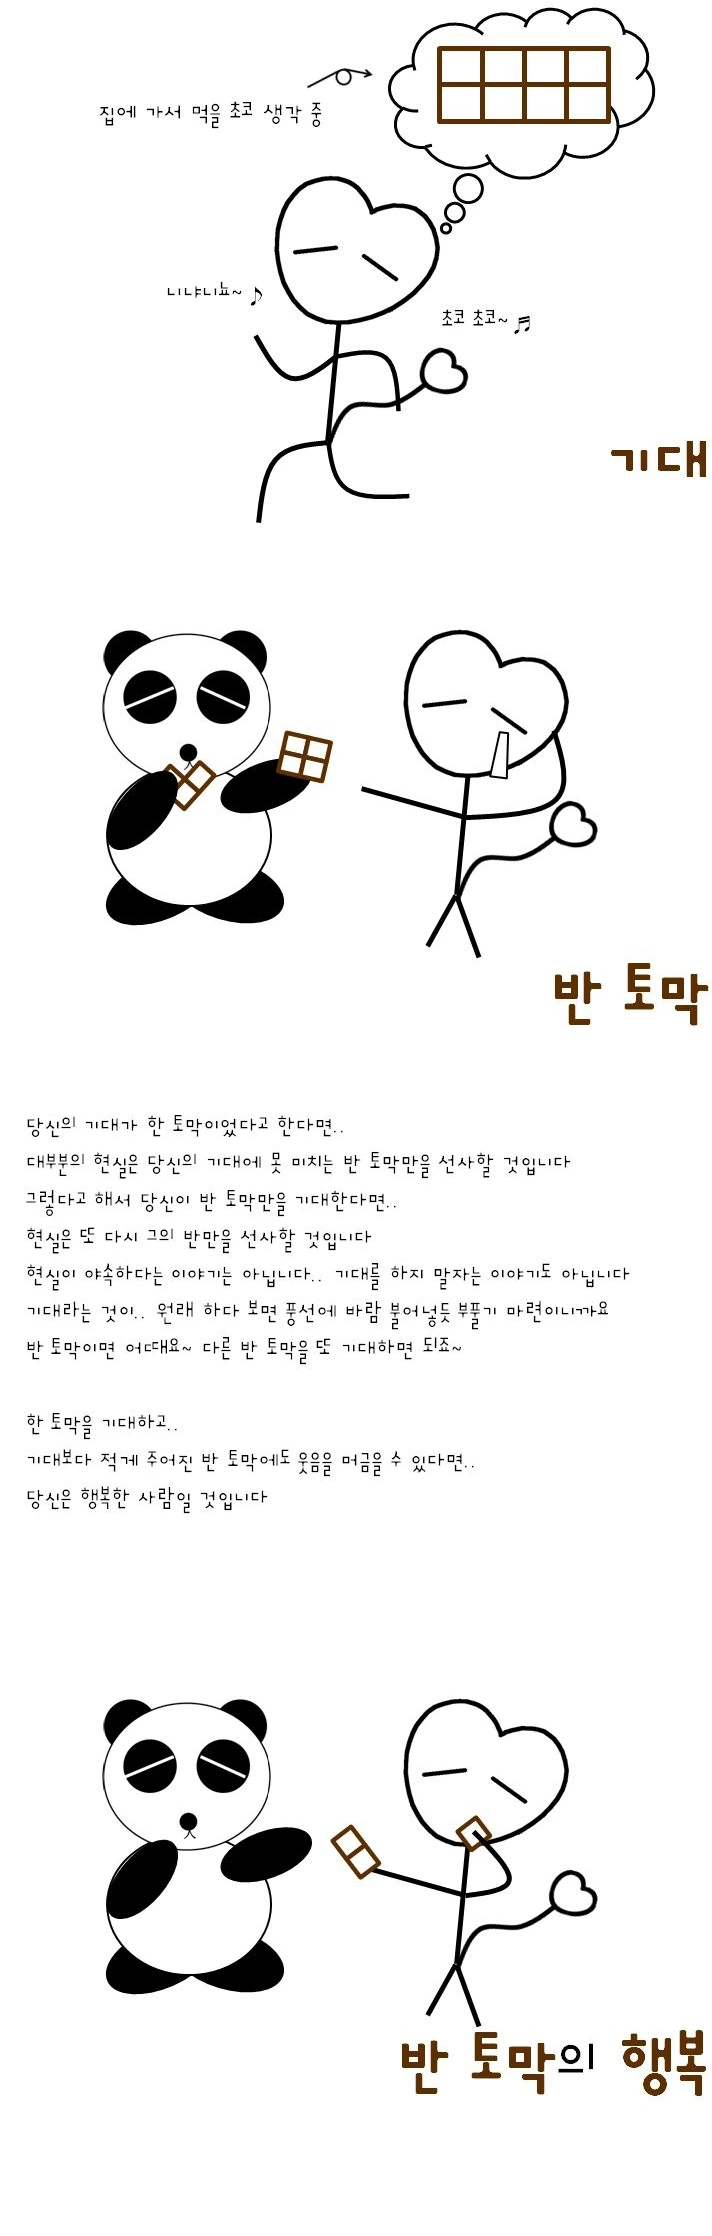 집에 가서 먹을 초코 생각 중
니냐니뇨~ ♪
초코 초코~ ♬
기대
반 토막
당신의 기대가 한 토막이었다고 한다면..
대부분의 현실은 당신의 기대에 못 미치는 반 토막만을 선사할 것입니다
그렇다고 해서 당신이 반 토막만을 기대한다면..
현실은 또 다시 그의 반만을 선사할 것입니다
현실이 야속하다는 이야기는 아닙니다.. 기대를 하지 말자는 이야기도 아닙니다
기대라는 것이.. 원래 하다 보면 풍선에 바람 불어넣듯 부풀기 마련이니까요
반 토막이면 어때요~ 다른 반 토막을 또 기대하면 되죠~
한 토막을 기대하고..
기대보다 적게 주어진 반 토막에도 웃음을 머금을 수 있다면..
당신은 행복한 사람일 것입니다
반 토막의 행복